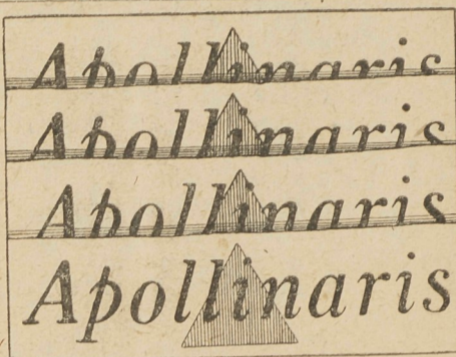 Apollinaris
Apollinaris
Apollinaris
Apollinaris